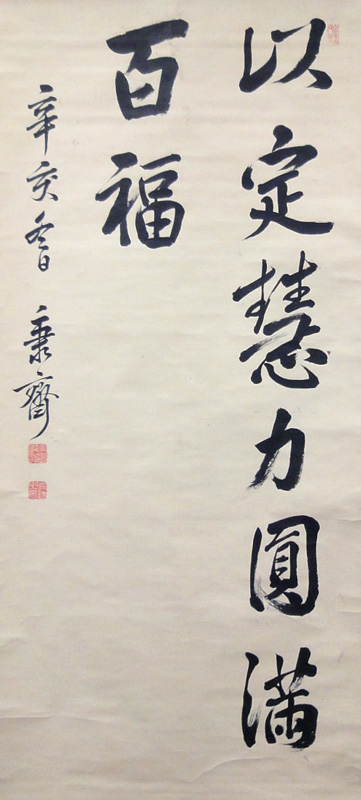 以定慧力圓滿
百福
辛亥冬日 秉齋